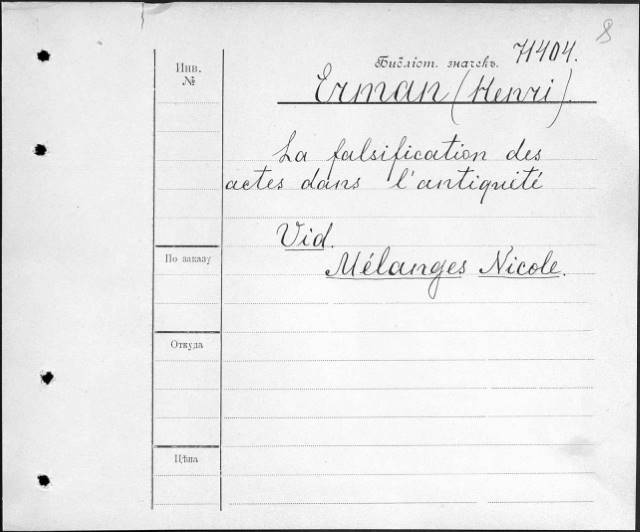 8
Инв.
№
Библіот. значекъ. 71404.
Erman (Henri).
La falsification des
actes dans l'antiquité
Vid.
Mélanges Nicole.
По заказу
Откуда
Цѣна